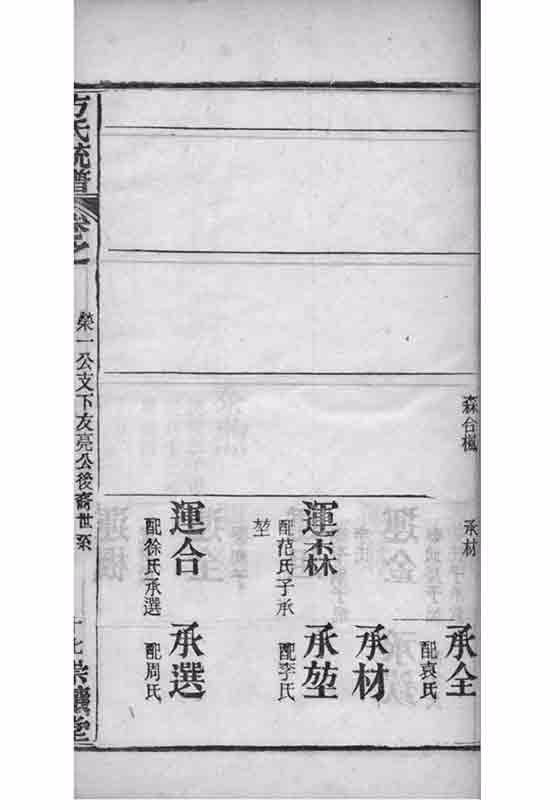 森合楓
承材
承全
配袁氏
承材
運森
配范氏子承
堃
承堃
配李氏
運合
配徐氏承選
承選
配周氏
方氏統譜
卷之一
榮一公支下友亮公後裔世系
十七